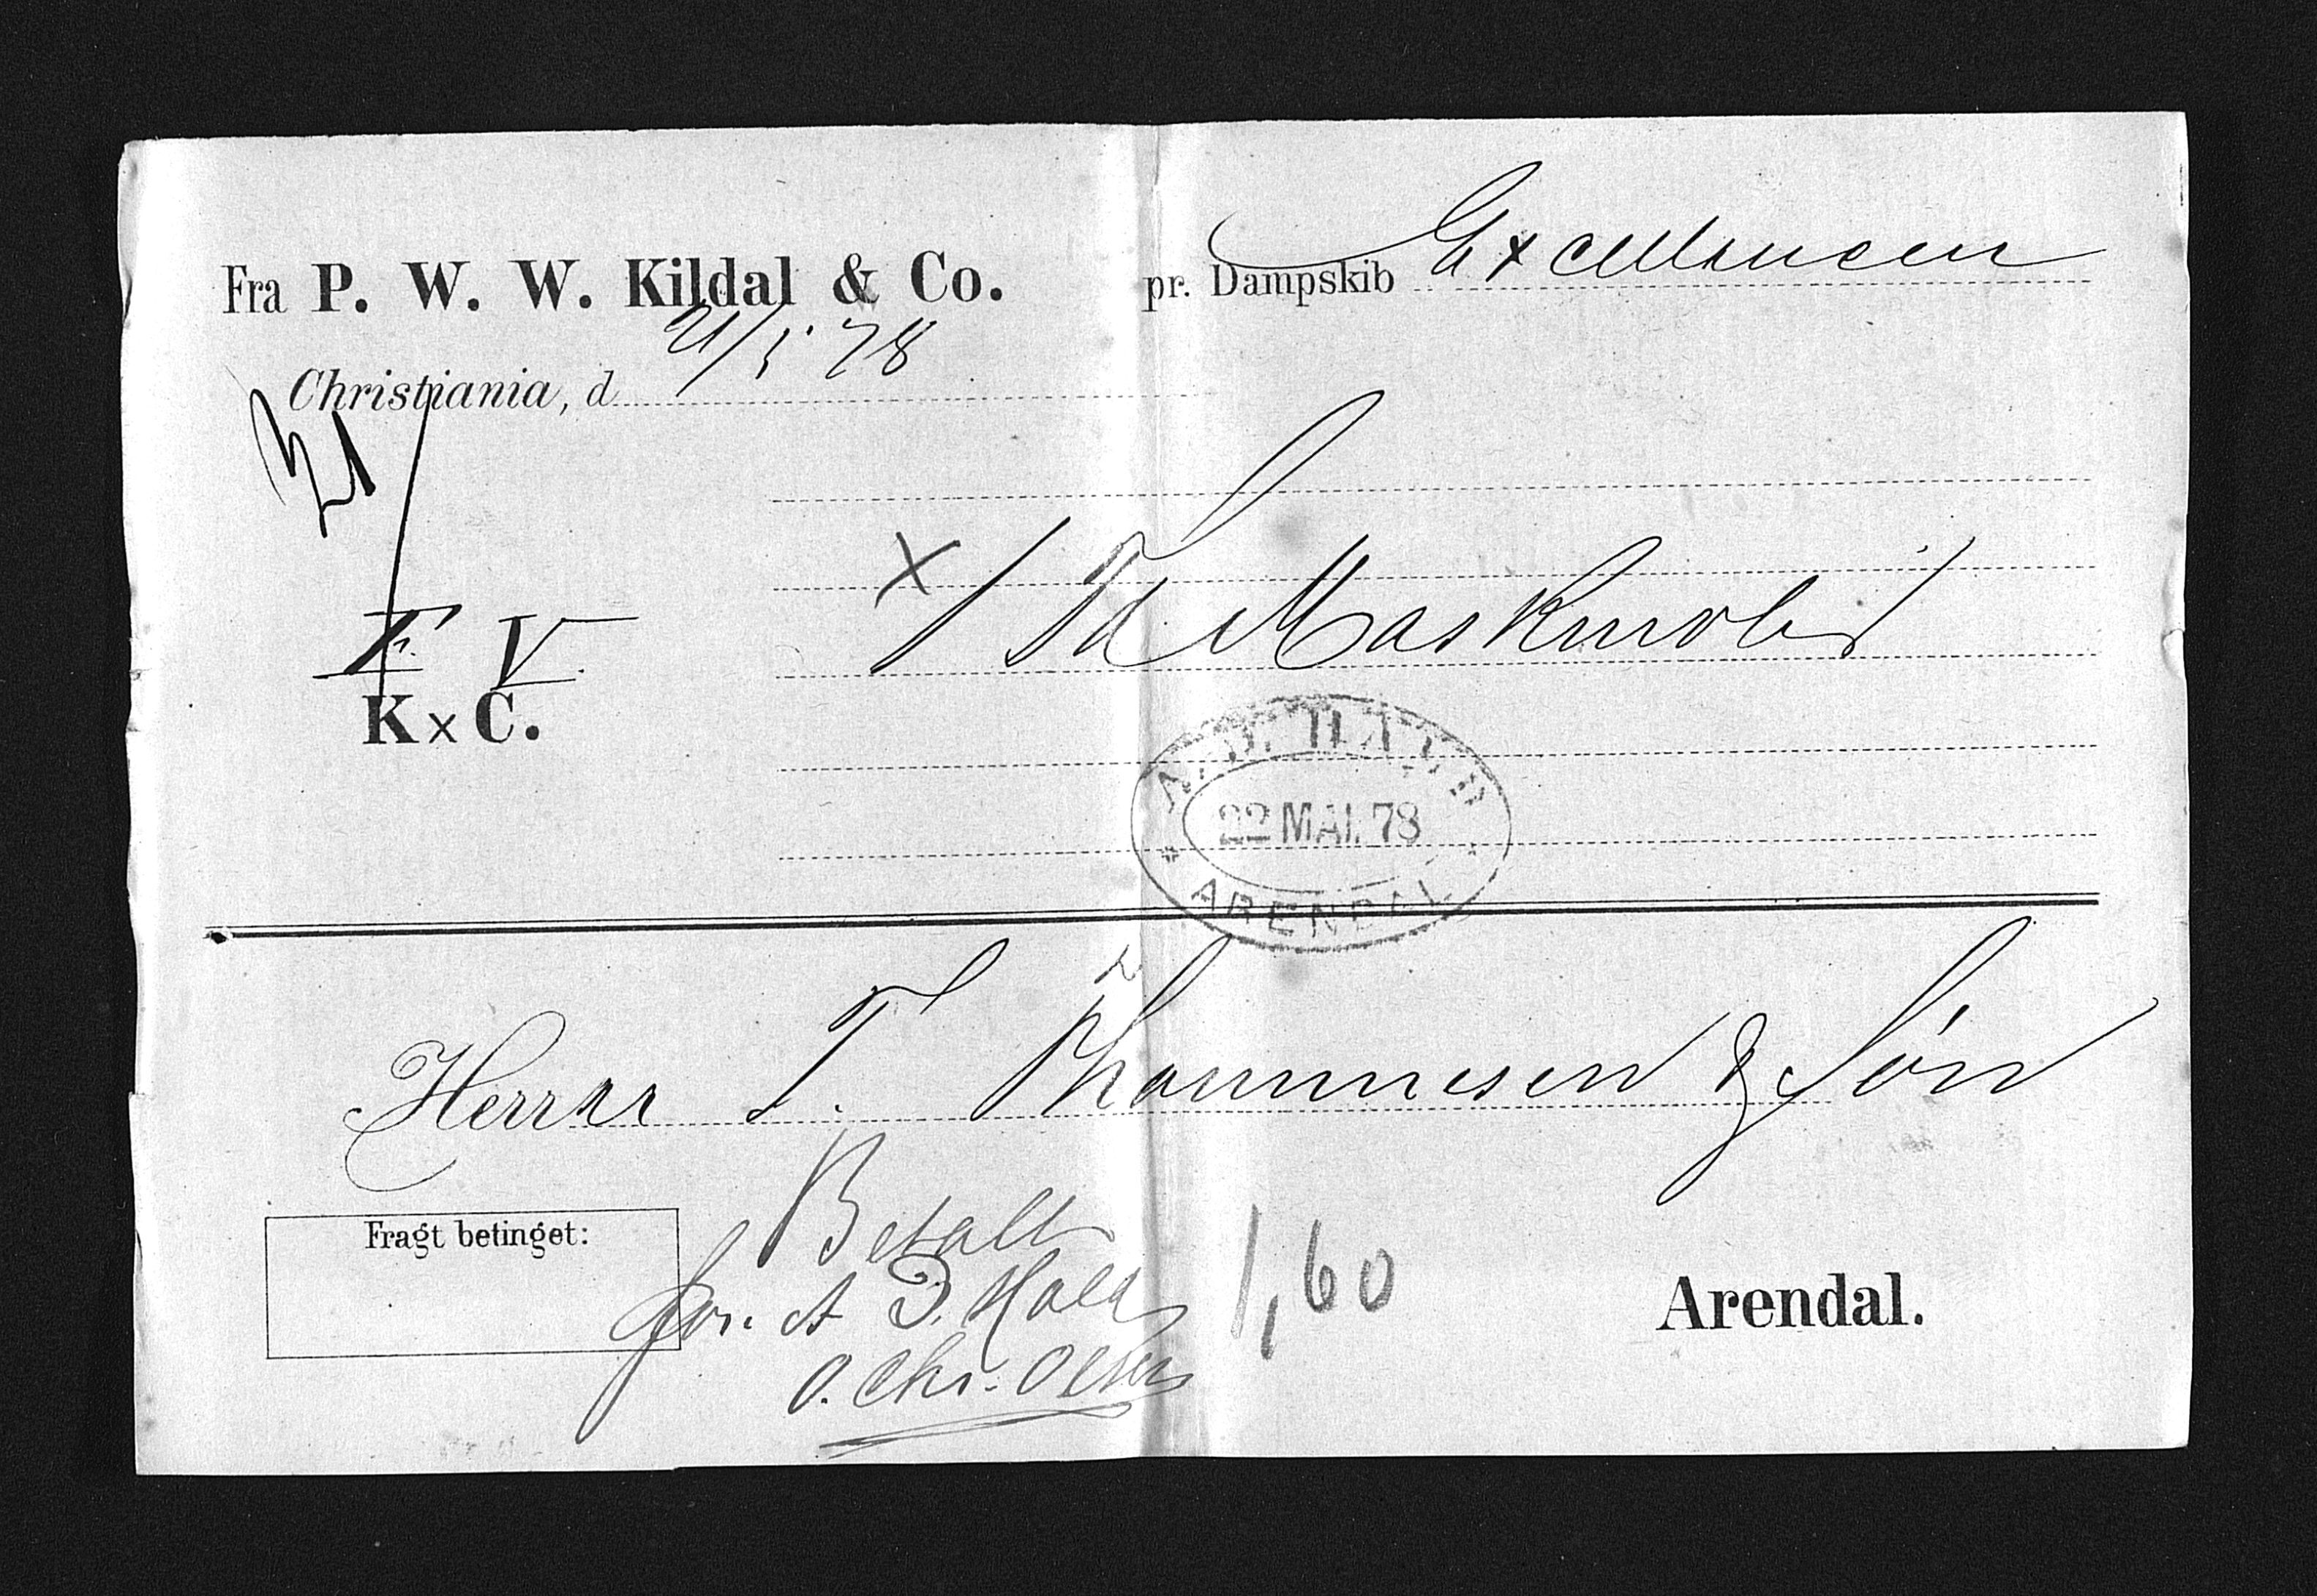 Fra P. W. W. Kildal & Co.
pr. Dampskib Excellencen
Christiania, d. 21/5 78
21/
F V
K x C.
x / Td Maskinolie
22 MAI. 78
ARENDAL
Herrer T. Thommesen & Søn
Fragt betinget:
Betalt
for. A D. Hald
O. Chr. Olsen
1,60
Arendal.